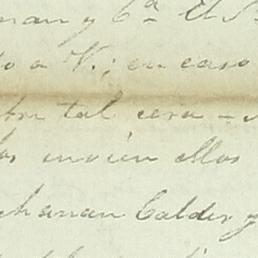 nan y Cª El S
o a V.; en caso
tal cosa -
los envien ellos
chanan Calder y